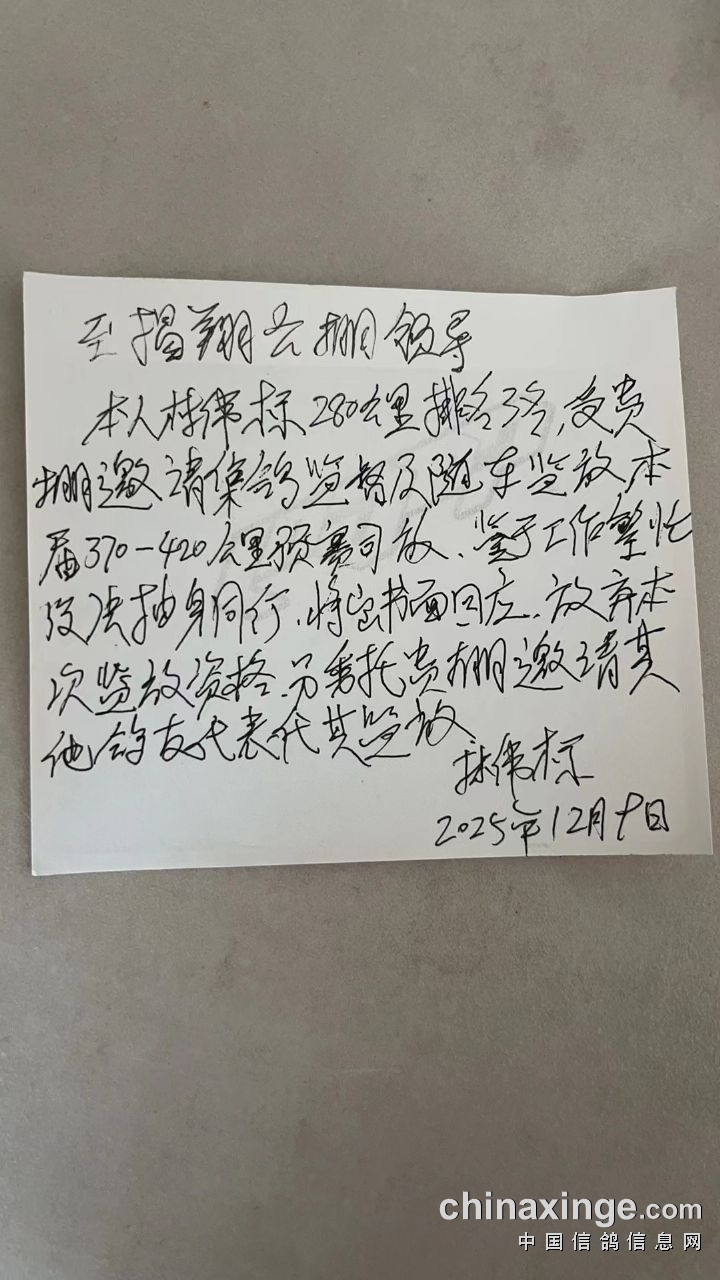 至揭翔公棚领导
本人林伟标280公里排名3名,受贵
棚邀请集鸽监督及随车监放本
届370-420公里预赛司放、鉴于工作繁忙
没法抽身同行、将书面回应、放弃本
次监放资格、另委托贵棚邀请其
他鸽友代表代其监放
林伟标
2025年12月9日
chinaxinge.com
中国信鸽信息网